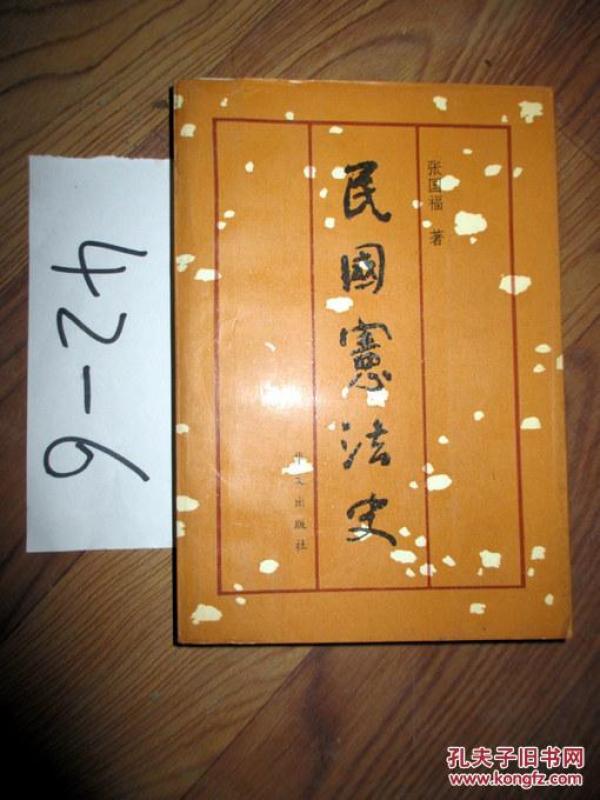 民國憲法史
张国福 著
华文出版社
42-6
孔夫子旧书网
www.kongfz.com